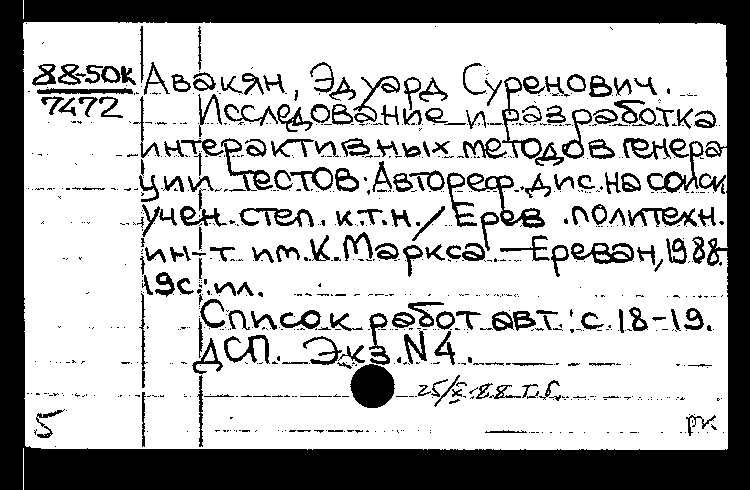 88-50к Авакян, Эдуард Суренович.
7472
Исследование и разработка
интерактивных методов генера-
ции тестов: Автореф. дис. на соиск.
учен. степ. к.т.н. / Ерев. политехн.
ин-т им. К. Маркса. — Ереван, 1988. -
19с.: ил.
Список работ авт.: с. 18-19.
ДСП. Экз. N 4.
25/X-88 т.б.
5 рк